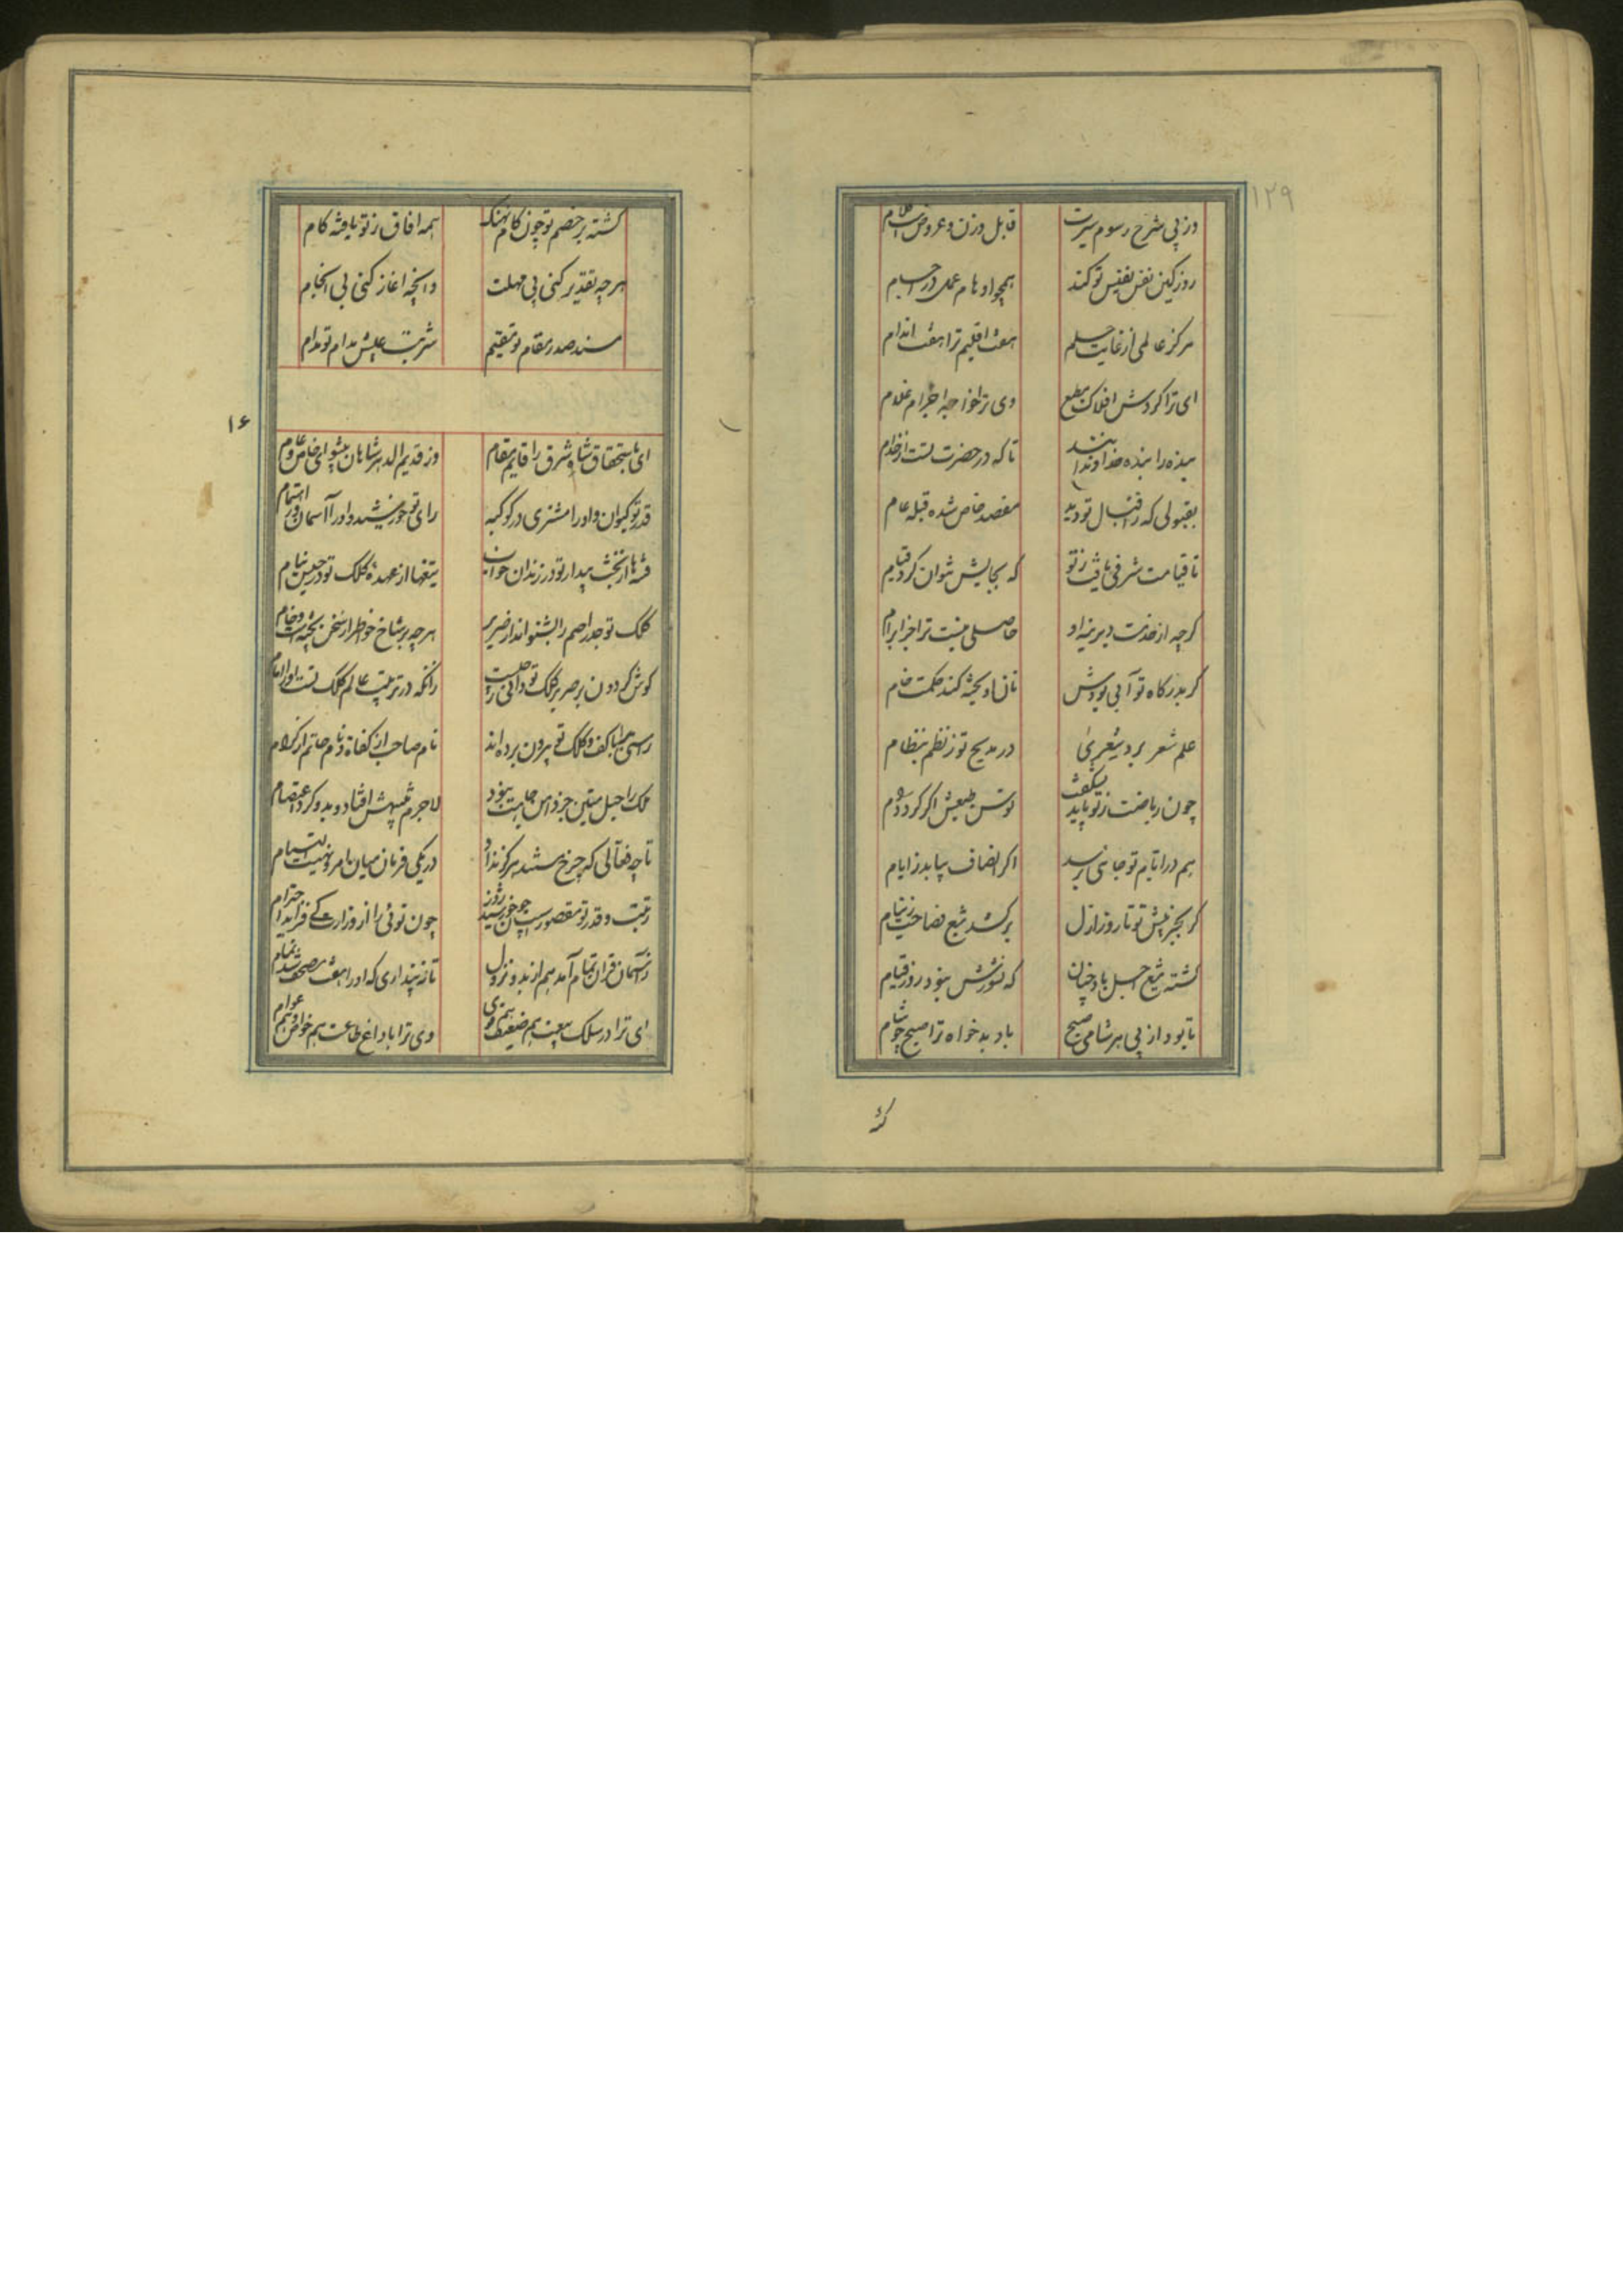 ۱۲۹
وز پی شرح رسوم سیرت قابل وزن و عروض است کلام
روز کین نفس نفیس تو کند همچو اوهام عمل در اجسام
مرکز عالمی از غایت حلم هفت اقلیم ترا هفت اندام
ای ترا کردش افلاک مطیع وی ترا خواجه اجرام غلام
بنده را بنده خداوندانند تا که در حضرت تست از خدام
بقبولی که ز اقبال تو دید مقصد خاص شده قبله عام
تا قیامت شرفی یافت ز تو که بجایش نتوان کرد قیام
کرچه از خدمت دیرینه او حاصلی نیست ترا جز ابرام
کر بدرکاه تو آبی بودش نان او پخته کند حکمت خام
علم شعر برد بشعری در مدیح تو ز نظم بنظام
چون ریاضت ز تو یابد نشکفت توسن طبعش اکر کردد رام
هم در ایام تو جائی برسد اکر انصاف بیابد ز ایام
کر بجز پیش تو تا روز ازل برکشد تیغ فصاحت ز نیام
کشته تیغ اجل باد چنان که نشورش نبود روز قیام
تا بود از پی هر شامی صبح باد بدخواه ترا صبح چو شام
کشته بر خصم تو چون کام نهنک همه افاق ز تو یافته کام
هرچه تقدیر کنی بی مهلت وانچه اغاز کنی بی انجام
مسند صدر مقام تو مقیم شربت عیش مدام تو مدام
۱۶
ای باستحقاق شاه شرق را قایم مقام وز قدیم الدهر شاهان پیشوای خاص و عام
قدر تو کیوان و او را مشتری در کوکبه رای تو خورشید و او را آسمان در اهتمام
فتنها از بخت بیدار تو در زندان خواب تیغها از عهده کلک تو در حبس نیام
کلک تو جذر اصم را بشنواند از صریر هرچه بر شاخ خواطر از سخن پخته است و خام
کوش کردون بر صریر کلک تو دانی ز چیست زانکه در ترتیب عالم کلک تست او را امام
راستی را با کف و کلک تو بیرون برده اند نام صاحب از کفاة و نام حاتم از کرام
ملک را حبل متین جز دامن جاهت نبود لاجرم پیش افتاد و بدو کرد اعتصام
تا چه فعالی که چرخ تند هرکز نداد در یکی فرمان میان امر و نهیت التیام
رتبت و قدر تو مقصورست چون خورشید و روز چون توئی را از وزارت کی فزاید احترام
ز آسمان قران تمام آمد هم از بدو نزول تا نپنداری که او را هفت مصحف شد تمام
ای ترا در سلک بیعت هم ضعیف و هم قوی وی ترا با داغ طاعت هم خواص و هم عوام